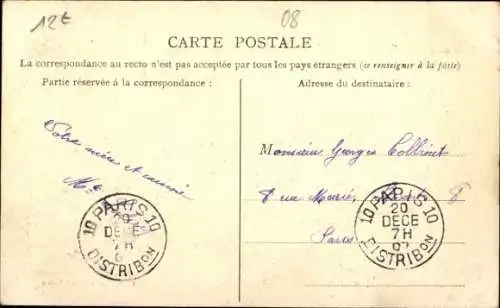 12€
08
CARTE POSTALE
La correspondance au recto n'est pas acceptée par tous les pays étrangers (se renseigner à la poste)
Partie réservée à la correspondance :
Adresse du destinataire :
Votre mère et
Monsieur Georges
8 rue
Paris
10 PARIS 10
20
DECE
7H
DISTRIBON
10 PARIS 10
20
DECE
7H
07
DISTRIBON